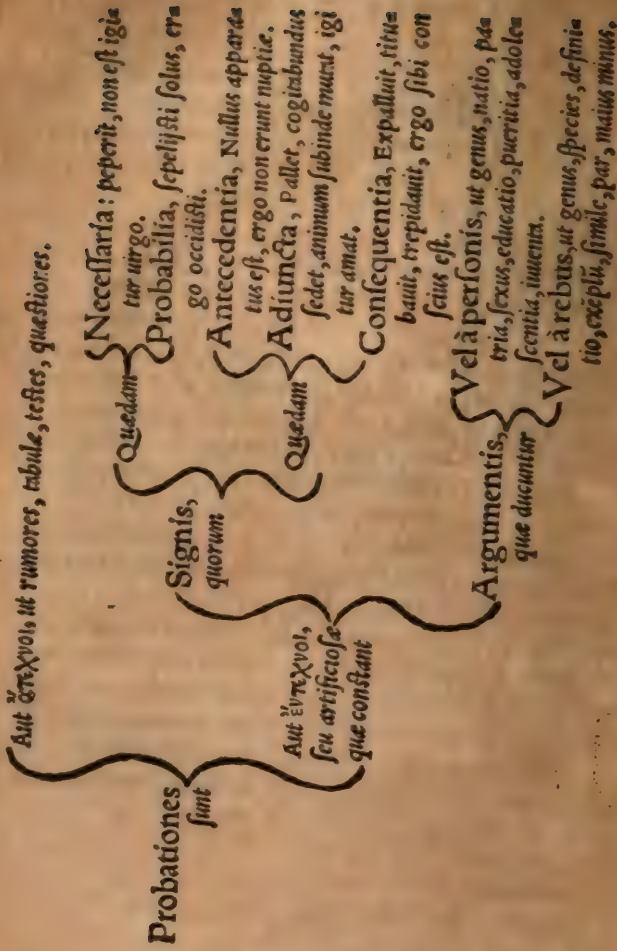 Probationes
sunt
Aut ἄτεχνοι, ut rumores, tabulæ, testes, quæstiones.
Aut ἔντεχνοι,
seu artificiosæ
quæ constant
Signis,
quorum
Quædam
Necessaria: peperit, non est igi=
tur uirgo.
Probabilia, sepelijsti solus, er=
go occidisti.
Quædam
Antecedentia, Nullus appara=
tus est, ergo non erunt nuptiæ.
Adiuncta, Pallet, cogitabundus
sedet, animum subinde mutat, igi
tur amat.
Consequentia, Expalluit, titu=
bauit, trepidauit, ergo sibi con
scius est.
Argumentis,
quæ ducuntur
Vel à personis, ut genus, natio, pa=
tria, sexus, educatio, pueritia, adole=
scentia, iuuenta.
Vel à rebus, ut genus, species, defini=
tio, exẽplũ, simile, par, maius minus.